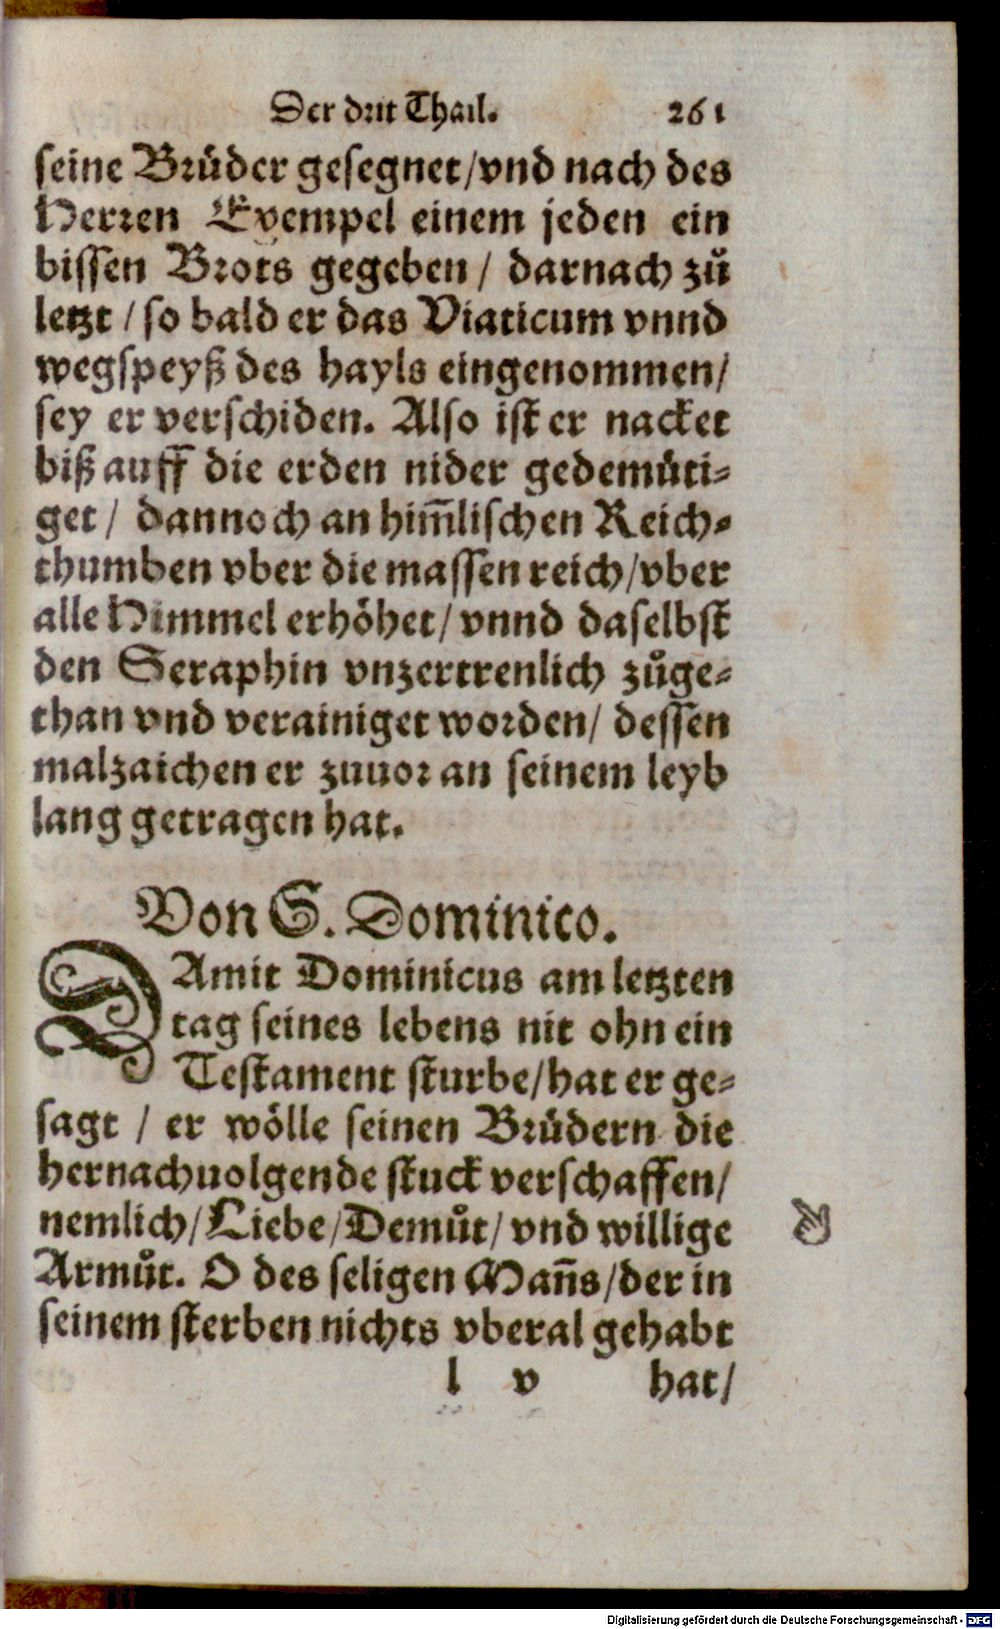 Der drit Thail. 261
seine Brüder gesegnet/vnd nach des
Herren Exempel einem jeden ein
bissen Brots gegeben / darnach zů
letzt / so bald er das Viaticum vnnd
wegspeyß des hayls eingenommen/
sey er verschiden. Also ist er nacket
biß auff die erden nider gedemüti-
get / dannoch an him̃lischen Reich-
thumben vber die massen reich/vber
alle Himmel erhöhet/ vnnd daselbst
den Seraphin vnzertrenlich zůge-
than vnd verainiget worden/ dessen
malzaichen er zuuor an seinem leyb
lang getragen hat.
Von S. Dominico.
DAmit Dominicus am letzten
tag seines lebens nit ohn ein
Testament sturbe/hat er ge-
sagt / er wölle seinen Brüdern die
hernachuolgende stuck verschaffen/
nemlich/Liebe/Demůt/vnd willige
Armůt. O des seligen Mañs/der in
seinem sterben nichts vberal gehabt
l v hat/
Digitalisierung gefördert durch die Deutsche Forschungsgemeinschaft - DFG